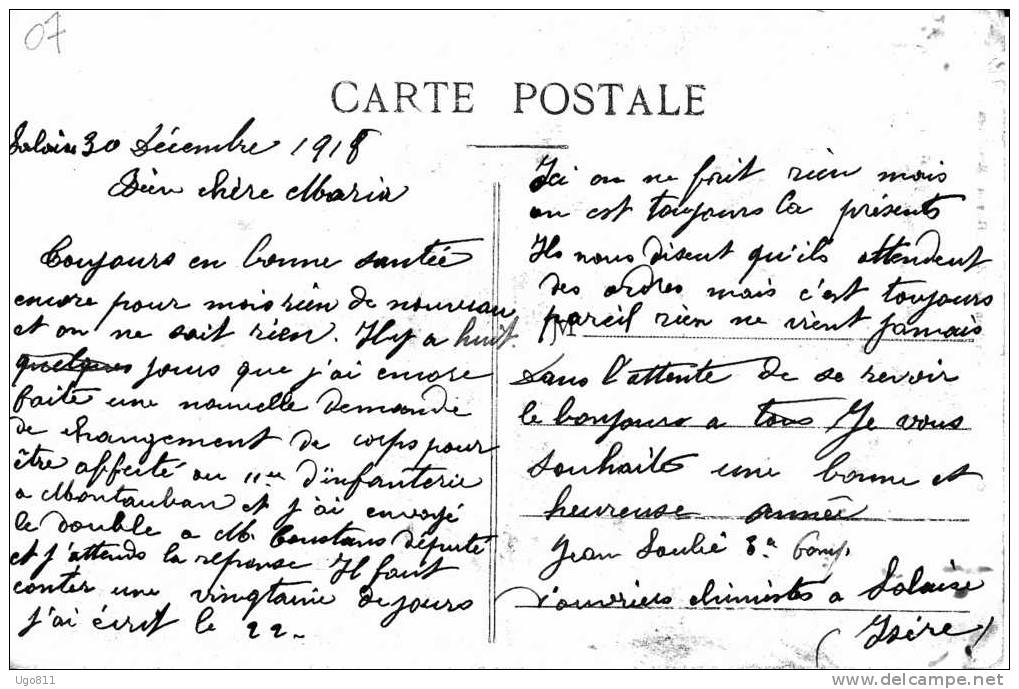 07
CARTE POSTALE
Salaise 30 Décembre 1918
Bien chère Maria
Toujours en bonne santée
encore pour mois rien de nouveau
et on ne sait rien. Il y a huit
quelques jours que j'ai encore
faite une nouvelle demande
de changement de corps pour
être affecté au 11me d'infanterie
a Montauban et j'ai envoyé
le double a M. Constans député
et j'attends la reponse Il faut
conter une vingtaine de jours
j'ai écrit le 22-
Ici on ne foit rien mais
on est toujours la présents
Ils nous disent qu'ils attendent
des ordres mais c'est toujours
pareil rien ne vient jamais
M
Dans l'attente de se revoir
le bonjour a tous Je vous
souhaite une bonne et
heureuse année
Jean Soulié 3e Comp.
d'ouvriers chimistes a Salaise
(Isère)
Ugo811
www.delcampe.net